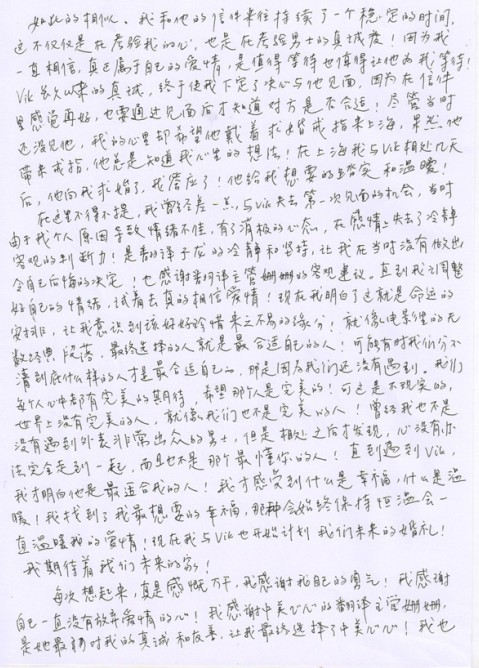 如此的相似。我和他的信件来往持续了一个稳定的时间,
这不仅仅是在考验我的心,也是在考验男士的真诚度!因为我
一直相信,真正属于自己的爱情,是值得等待也值得让他为我等待!
Vik长久以来的真诚,终于使我下定了决心与他见面,因为在信件
里感觉再好,也要通过见面后才知道对方是不是合适!尽管当时
还没见他,我的心里却希望他戴着求婚戒指来上海,果然他
带来戒指,他总是知道我心里的想法!在上海我与Vik相处几天
后,他向我求婚了,我答应了!他给我想要的踏实和温暖!
在这里不得不提,我曾经差一点,与Vik失去第一次见面的机会,当时
由于我个人原因导致情绪不佳,有了消极的心态,在感情上失去了冷静
客观的判断力!是翻译子龙的冷静和坚持,让我在当时没有做出
令自己后悔的决定!也感谢翻译主管姗姗的客观建议。直到我调整
好自己的情绪,试着去真的相信爱情!现在我明白了这就是命运的
安排,让我意识到该好好珍惜来之不易的缘分!就像电影里的无
数经典段落,最终选择的人就是最合适自己的人!可能有时我们分不
清到底什么样的人才是最合适自己的,那是因为我们还没有遇到。我们
每个人心中都有完美的期待,希望那个人是完美的!可这是不现实的,
世界上没有完美的人,就像我们也不是完美的人!曾经我也不是
没有遇到外表非常出众的男士,但是相处之后才发现,心没有办
法完全走到一起,而且也不是那个最懂你的人!直到遇到Vik,
我才明白他是最适合我的人!我才感觉到什么是幸福,什么是温
暖!我找到了我最想要的幸福,那种会始终保持恒温会一
直温暖我的爱情!现在我与Vik也开始计划我们未来的婚礼!
我期待着我们未来的家!
每次想起来,真是感慨万千,我感谢我自己的勇气!我感谢
自己一直没有放弃爱情的心!我感谢中美心心的翻译主管姗姗,
是她最初对我的真诚和友善,让我最终选择了中美心心!我也